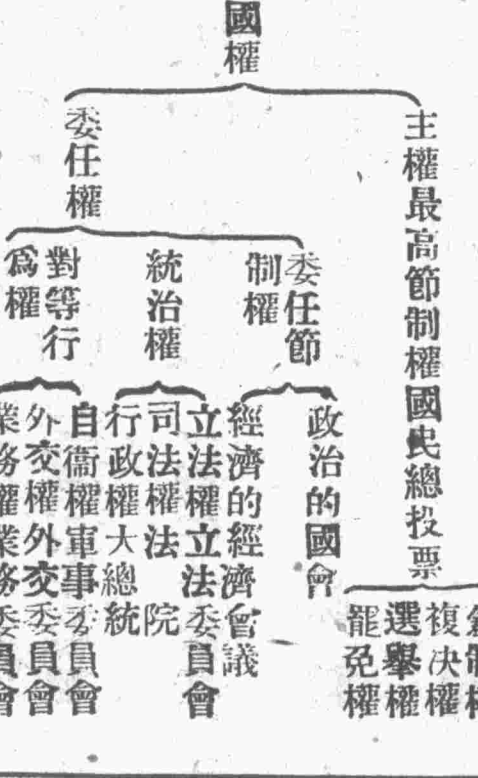 國權
主權最高節制權國民總投票
制權
複決權
選舉權
罷免權
委任權
委任節
制權
政治的國會
經濟的經濟會議
統治權
立法權立法委員會
司法權法院
行政權大總統
對等行
為權
自衞權軍事委員會
外交權外交委員會
業務權業務委員會